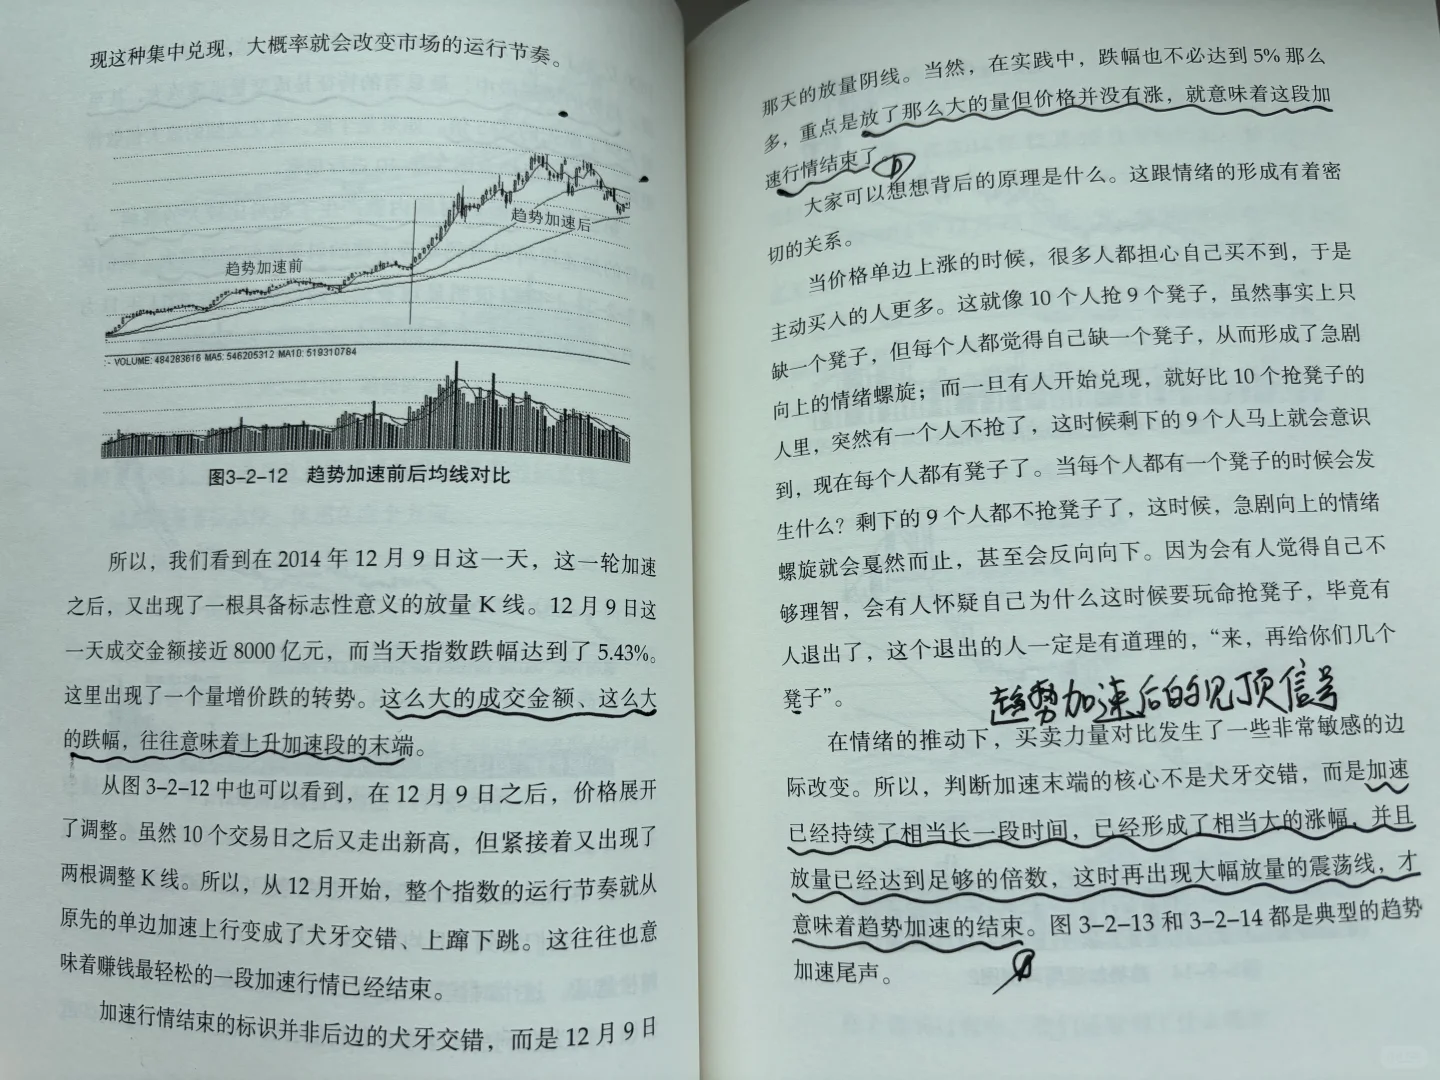 现这种集中兑现，大概率就会改变市场的运行节奏。
趋势加速后
趋势加速前
- VOLUME: 484283616 MA5: 546205312 MA10: 519310784
图3-2-12 趋势加速前后均线对比
所以，我们看到在2014年12月9日这一天，这一轮加速
之后，又出现了一根具备标志性意义的放量K线。12月9日这
一天成交金额接近8000亿元，而当天指数跌幅达到了5.43%。
这里出现了一个量增价跌的转势。这么大的成交金额、这么大
的跌幅，往往意味着上升加速段的末端。
从图3-2-12中也可以看到，在12月9日之后，价格展开
了调整。虽然10个交易日之后又走出新高，但紧接着又出现了
两根调整K线。所以，从12月开始，整个指数的运行节奏就从
原先的单边加速上行变成了犬牙交错、上蹿下跳。这往往也意
味着赚钱最轻松的一段加速行情已经结束。
加速行情结束的标识并非后边的犬牙交错，而是12月9日
那天的放量阴线。当然，在实践中，跌幅也不必达到5%那么
多，重点是放了那么大的量但价格并没有涨，就意味着这段加
速行情结束了。
大家可以想想背后的原理是什么。这跟情绪的形成有着密
切的关系。
当价格单边上涨的时候，很多人都担心自己买不到，于是
主动买入的人更多。这就像10个人抢9个凳子，虽然事实上只
缺一个凳子，但每个人都觉得自己缺一个凳子，从而形成了急剧
向上的情绪螺旋；而一旦有人开始兑现，就好比10个抢凳子的
人里，突然有一个人不抢了，这时候剩下的9个人马上就会意识
到，现在每个人都有凳子了。当每个人都有一个凳子的时候会发
生什么？剩下的9个人都不抢凳子了，这时候，急剧向上的情绪
螺旋就会戛然而止，甚至会反向向下。因为会有人觉得自己不
够理智，会有人怀疑自己为什么这时候要玩命抢凳子，毕竟有
人退出了，这个退出的人一定是有道理的，“来，再给你们几个
凳子”。
趋势加速后的见顶信号
在情绪的推动下，买卖力量对比发生了一些非常敏感的边
际改变。所以，判断加速末端的核心不是犬牙交错，而是加速
已经持续了相当长一段时间，已经形成了相当大的涨幅，并且
放量已经达到足够的倍数，这时再出现大幅放量的震荡线，才
意味着趋势加速的结束。图3-2-13和3-2-14都是典型的趋势
加速尾声。